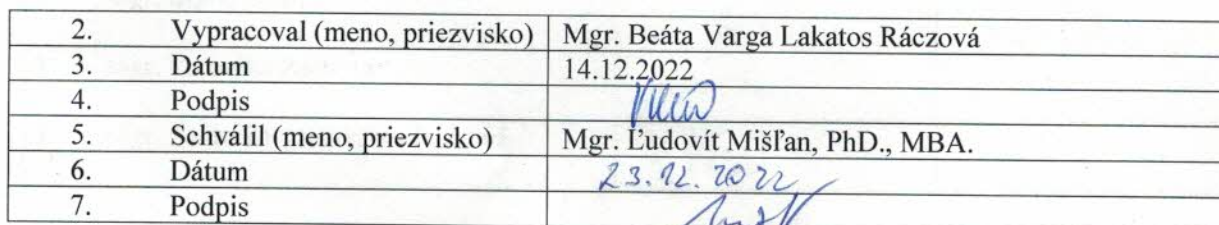 2. Vypracoval (meno, priezvisko) Mgr. Beáta Varga Lakatos Ráczová
3. Dátum 14.12.2022
4. Podpis
5. Schválil (meno, priezvisko) Mgr. Ľudovít Mišľan, PhD., MBA.
6. Dátum 23.12.2022
7. Podpis